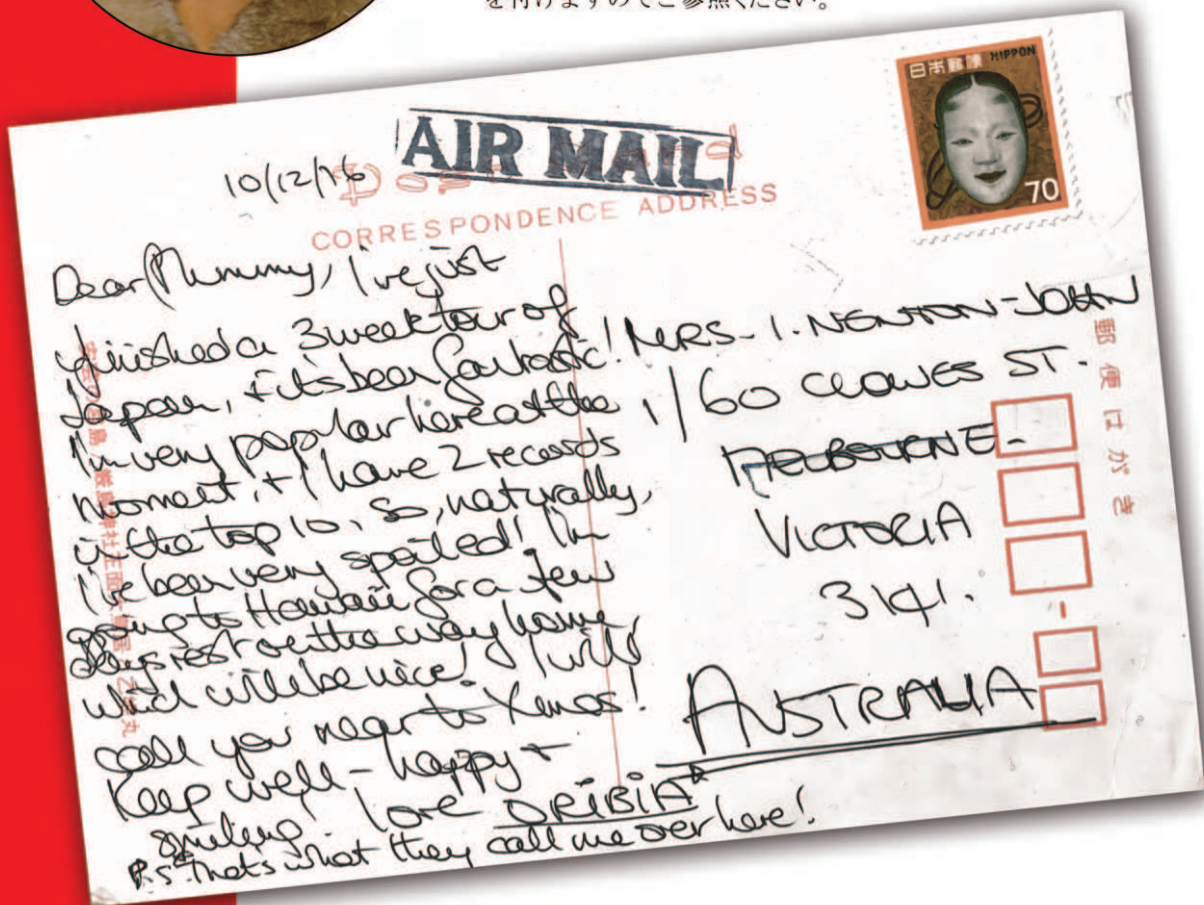 を付けますのでご参照ください。
日本郵便 NIPPON
70
AIR MAIL
10/12/76
CORRESPONDENCE ADDRESS
Dear Mummy, I've just
finished a 3 week tour of
Japan, + its been fantastic!
I'm very popular here at the
moment, + I have 2 records
in the top 10. So, naturally,
I've been very spoiled! I'm
going to Hawaii for a few
days rest on the way home,
which will be nice! I will
call you near to Xmas!
Keep well - happy +
smiling. love ORIBIA*
P.S* Thats what they call me over here!
MRS. I. NEWTON-JOHN
1/60 CLOWES ST.
MELBOURNE
VICTORIA
3141.
AUSTRALIA
郵便はがき